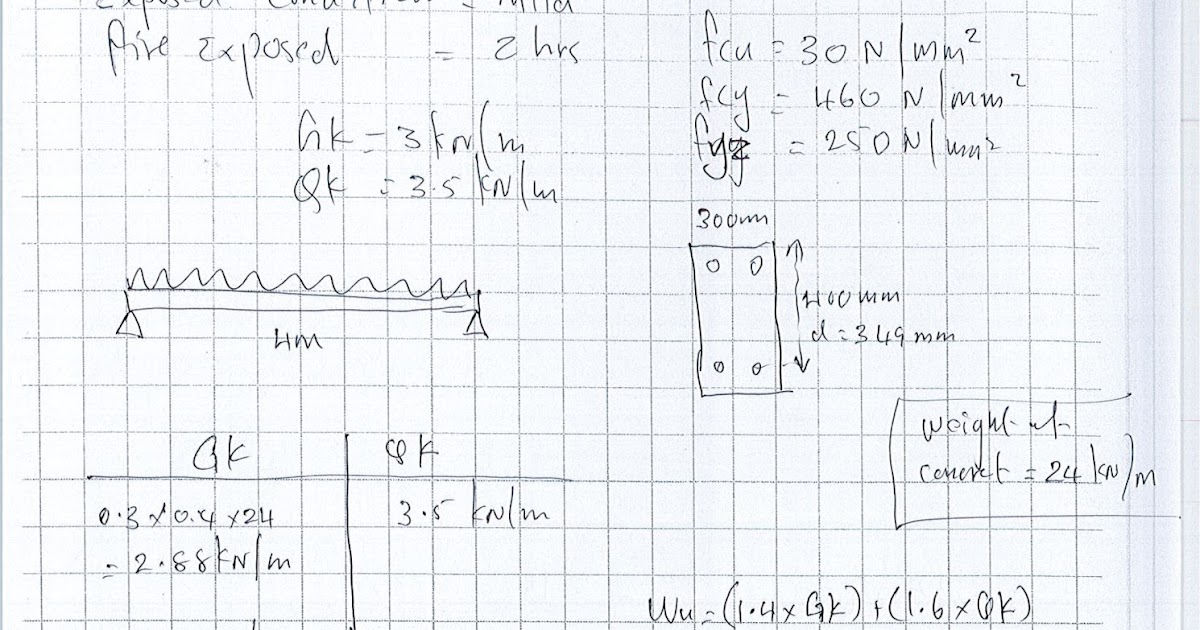 Exposed Condition = Mild
fire Exposed = 2 hrs
fcu = 30 N/mm²
fcy = 460 N/mm²
fyz = 250 N/mm²
Gk = 3 kN/m
Qk = 3.5 kN/m
300mm
400mm
d = 349 mm
4m
weight of
concret = 24 kN/m
Gk Qk
0.3 x 0.4 x 24 3.5 kN/m
= 2.88 kN/m
Wu = (1.4 x Gk) + (1.6 x Qk)